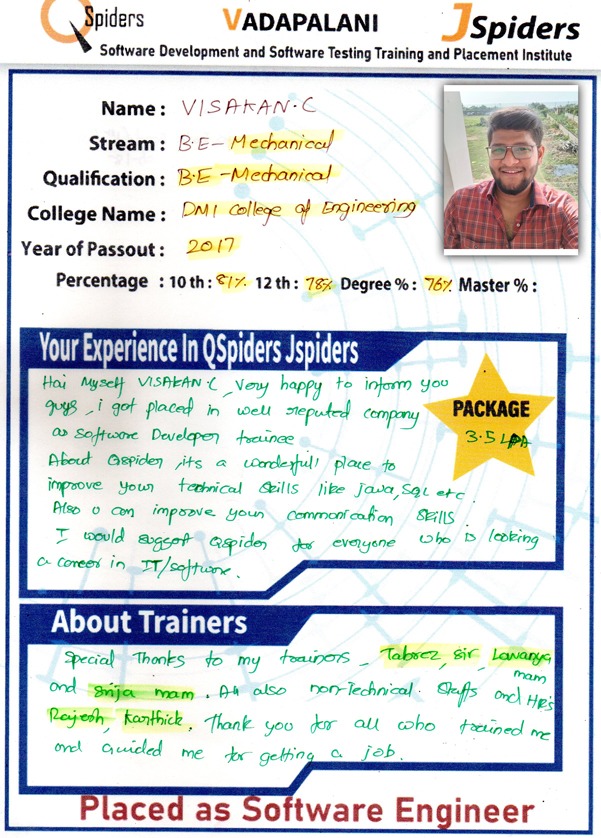 QSpiders VADAPALANI JSpiders
Software Development and Software Testing Training and Placement Institute
Name : VISAKAN.C
Stream : B.E - Mechanical
Qualification : B.E - Mechanical
College Name : DMI College of Engineering
Year of Passout : 2017
Percentage : 10 th : 81% 12 th : 78% Degree % : 76% Master % :
Your Experience In QSpiders Jspiders
Hai Myself VISAKAN.C, Very happy to inform you
guys, i got placed in well reputed company
as Software Developer trainee
About Qspider, its a wonderfull place to
improve your technical skills like java, SQL etc.
Also u can improve your commonication skills.
I would suggest Qspider for everyone who is looking
a career in IT/software.
PACKAGE
3.5 LPA
About Trainers
Special Thanks to my trainers, Tabrez sir, Lavanya
mam
and Srija mam. All also non-Technical Staffs and HR's
Rajesh, Karthick. Thank you for all who trained me
and Guided me for getting a job.
Placed as Software Engineer